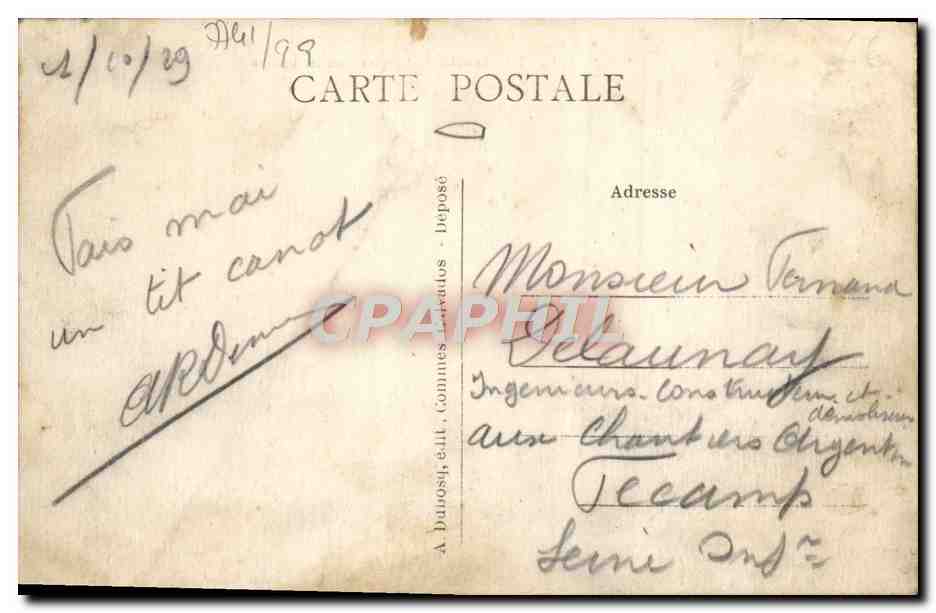 1/10/29
CARTE POSTALE
Fais mai
un tit canot
A. Dubosq, édit, Commes Calvados - Déposé
Adresse
Monsieur Fernand
Delaunay
Ingenieurs-Constructeur et
démolisseur
aux Chantiers Argentin
Fecamp
Seine Infre
CPAPHIL